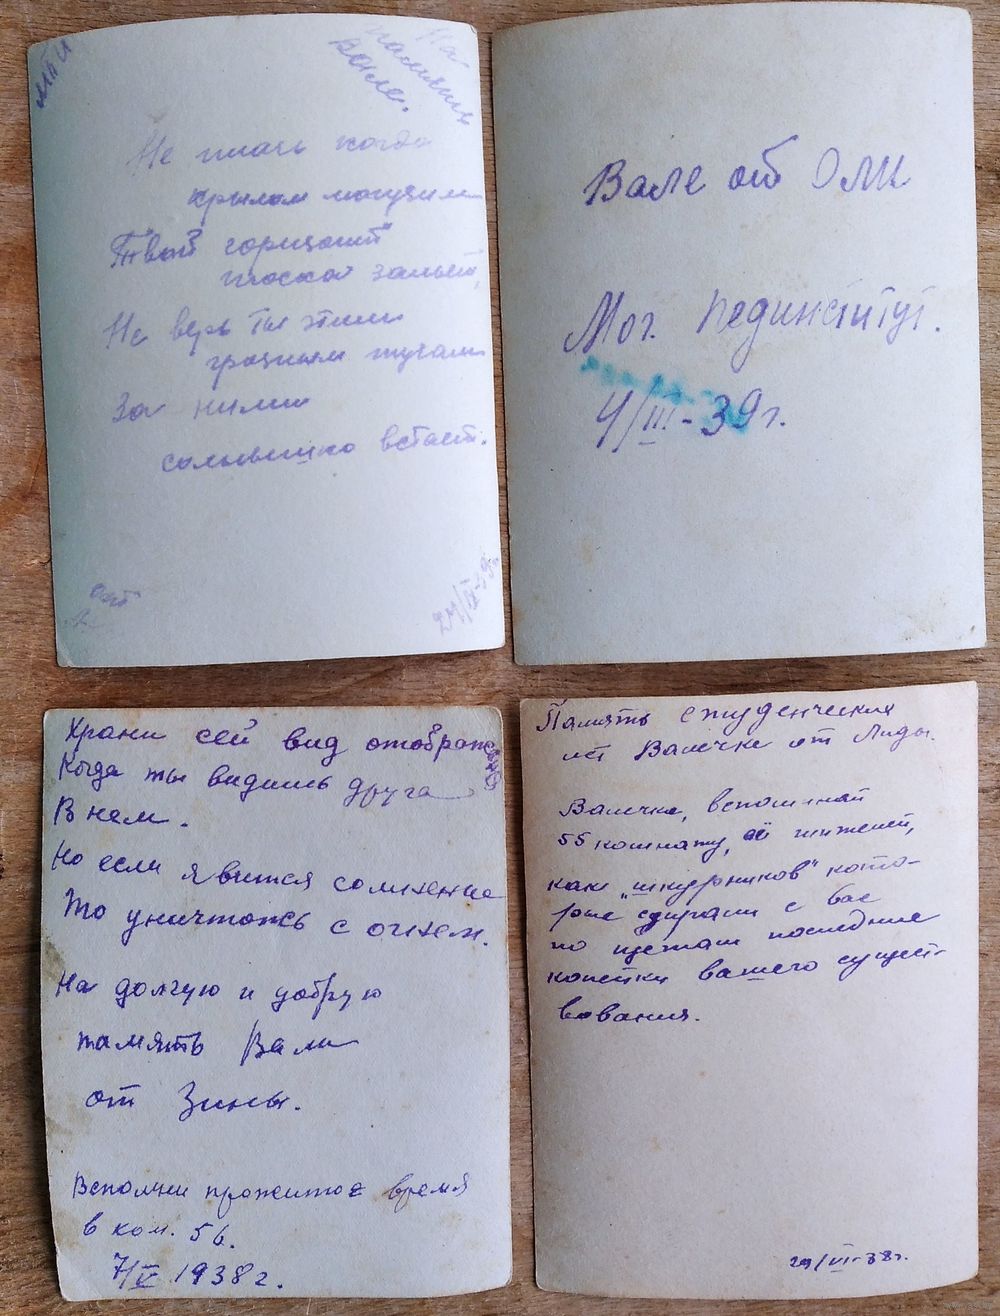 На
память
Вале.
Не плачь когда
крылом могучим
Твой горизонт
тоска зальёт,
Не верь ты этим
грозным тучам
За ними
солнышко встает.
от
Вале от Оли
Мог. пединститут.
4/III-39г.
Храни сей вид отображ
Когда ты видишь друга
В нем.
Но если явится сомнение
То уничтожь с огнем.
На долгую и добрую
память Вали
от Зины.
Вспомни прожитое время
в ком. 56.
7/V 1938г.
Память студенческих
лет Валечке от Лиды.
Валечка, вспоминай
55 комнату, её жителей,
как "шкурников" кото-
рые сдирали с вас
по щетам последние
копейки вашего сущест-
вования.
29/VI-38г.